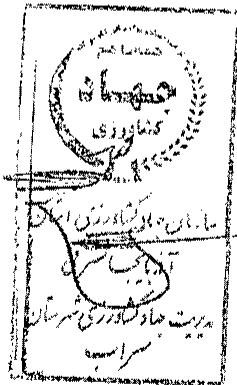 جهاد
کشاورزی
سازمان جهاد کشاورزی استان
آذربایجان شرقی
مدیریت جهاد کشاورزی شهرستان
سراب